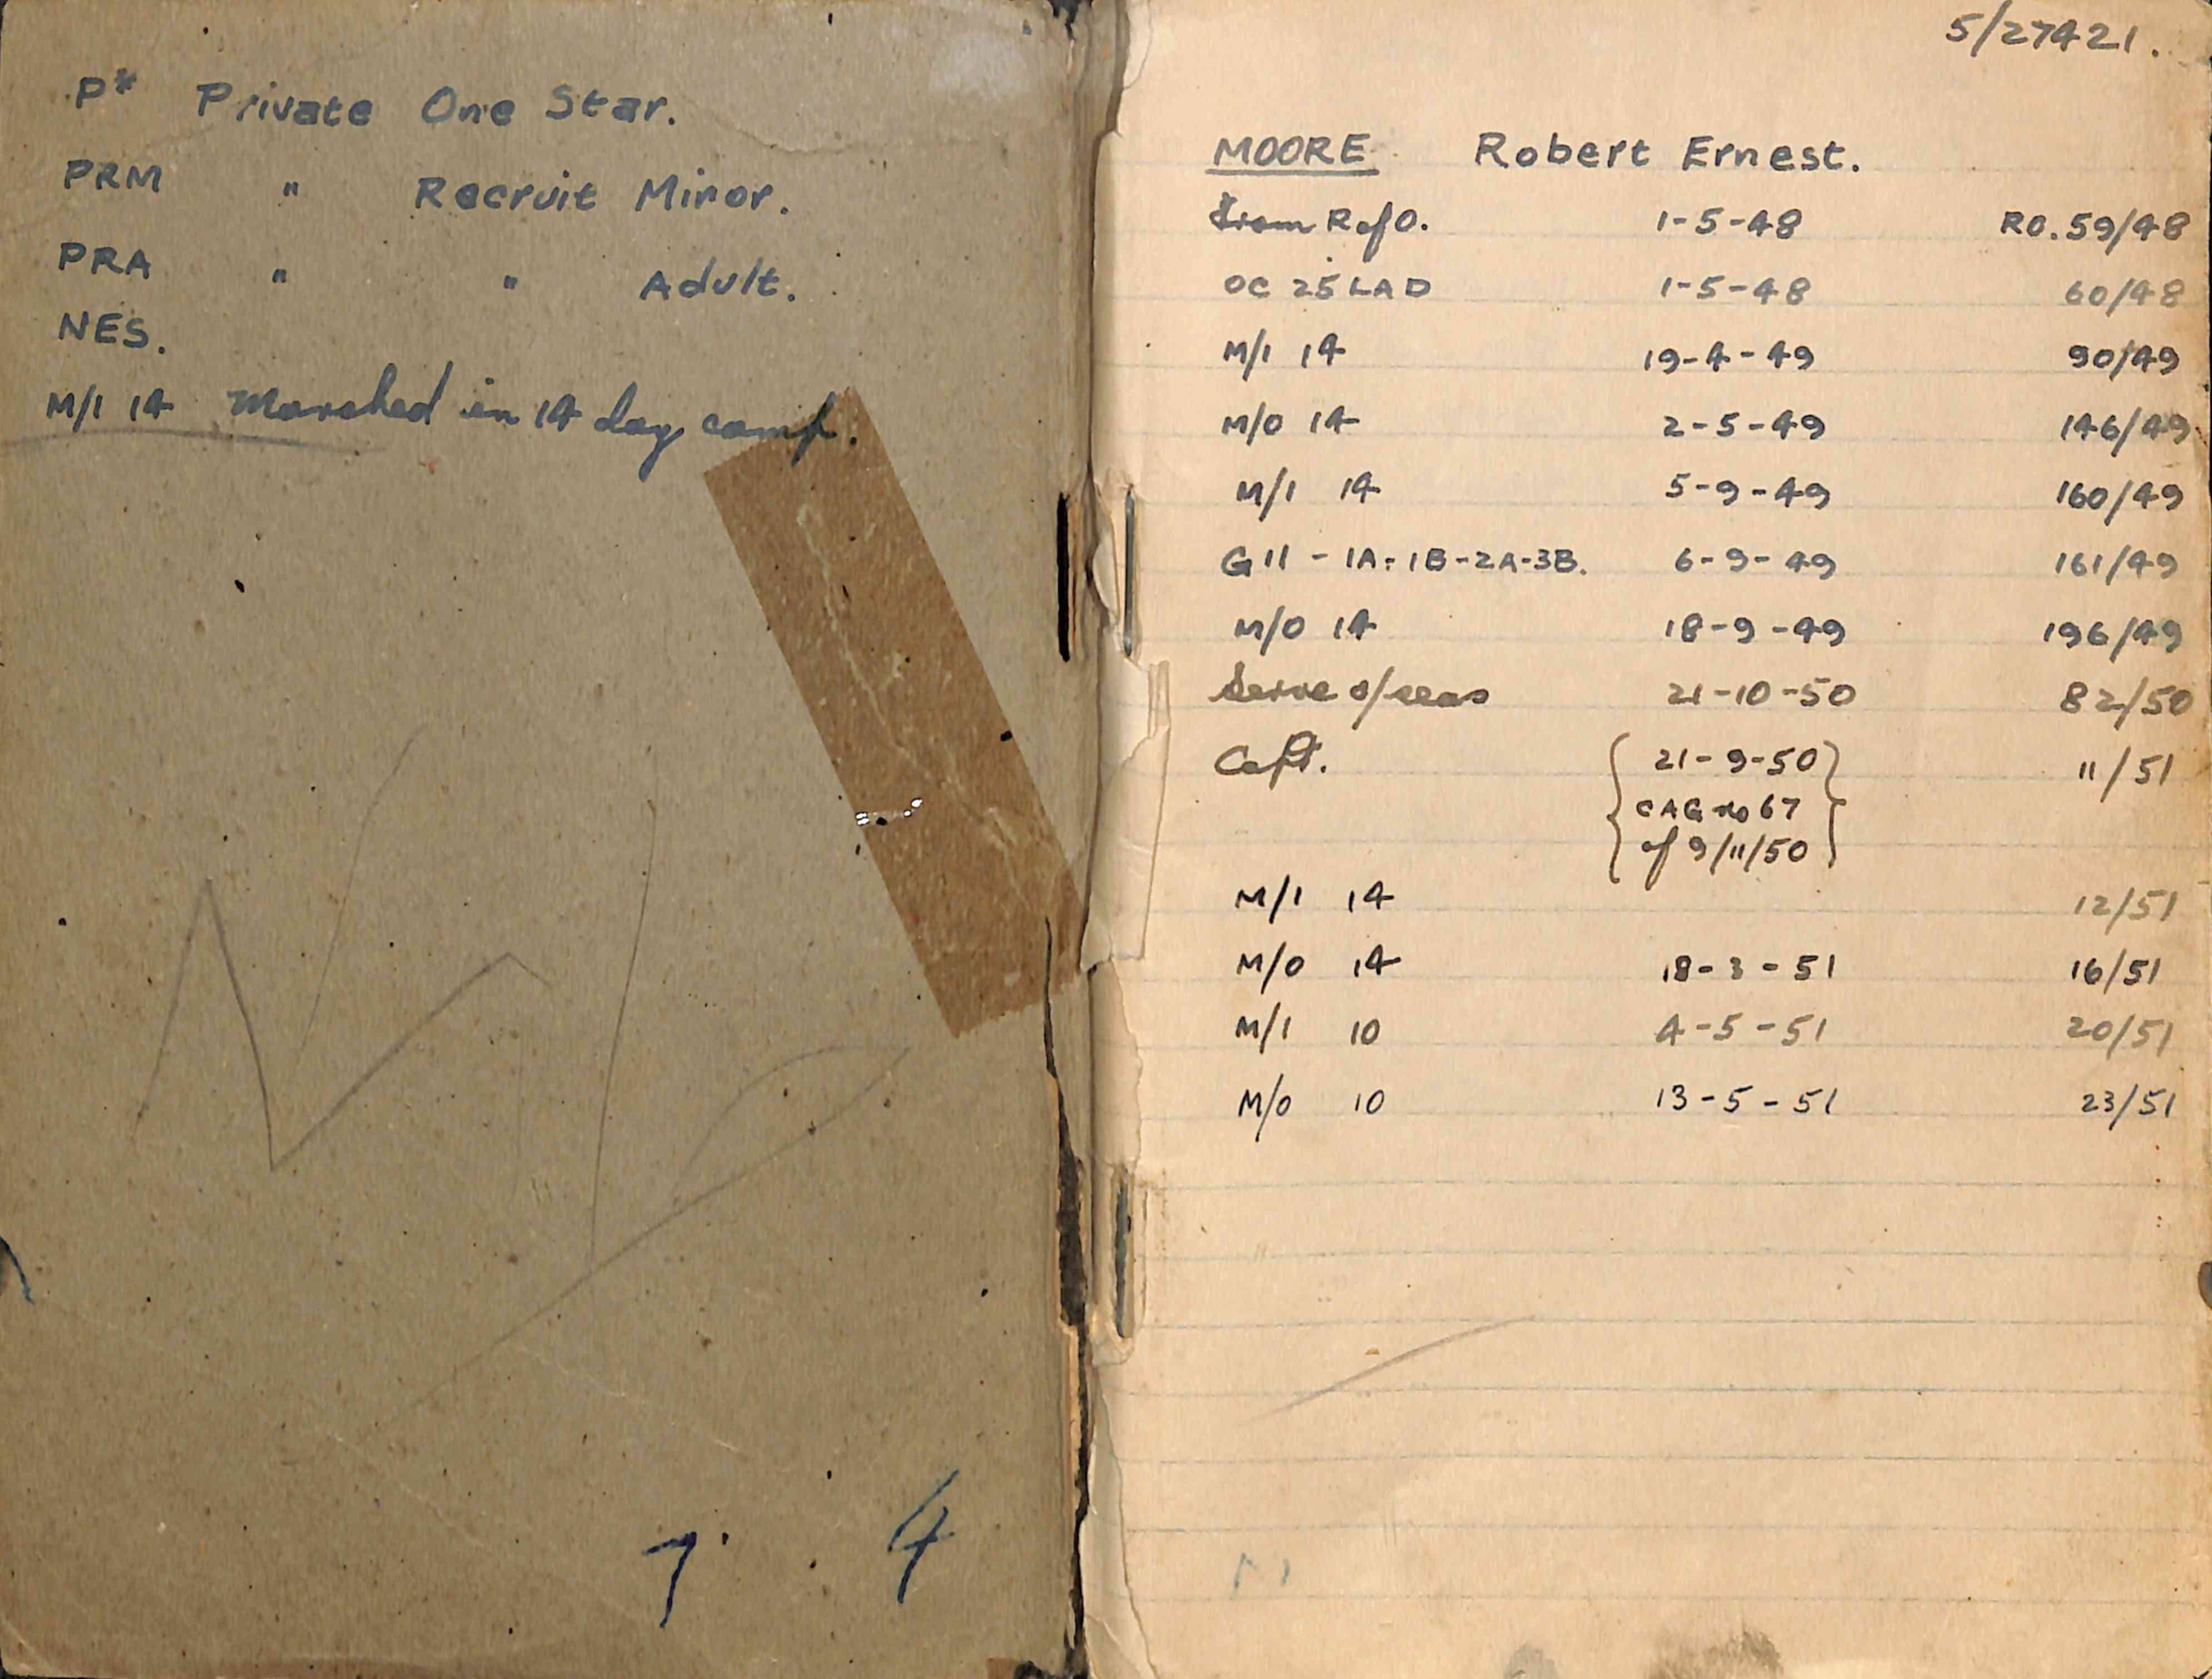 P* Private One Star.
PRM " Recruit Minor.
PRA " " Adult.
NES.
M/I 14 Marched in 14 day camp.
7 4
5/27421.
MOORE Robert Ernest.
from R of O. 1-5-48 RO. 59/48
OC 25 LAD 1-5-48 60/48
M/I 14 19-4-49 90/49
M/O 14 2-5-49 146/49
M/I 14 5-9-49 160/49
G11 - 1A-1B-2A-3B. 6-9-49 161/49
M/O 14 18-9-49 196/49
Serve o/seas 21-10-50 82/50
Capt. 21-9-50 11/51
CAG no 67
of 9/11/50
M/I 14 12/51
M/O 14 18-3-51 16/51
M/I 10 4-5-51 20/51
M/O 10 13-5-51 23/51